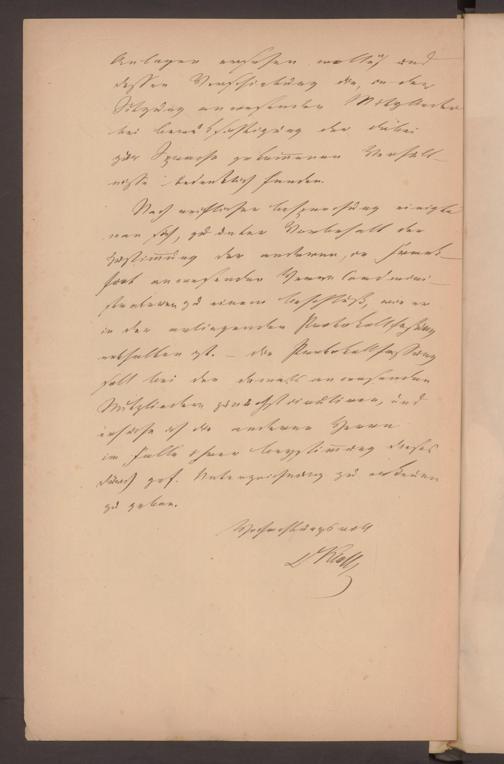 Anlagen ersehen wollen und
dessen Verschiebung die, an der
Sitzung anwesenden Mitglieder
bei Berücksichtigung der dabei
zur Sprache gekommenen Verhält-
nisse bedenklich fanden.
Nach reiflicher Besprechung einigte
man sich, unter Vorbehalt der
Zustimmung der anderen, in Frank-
furt anwesenden Herren Coadmini-
stratoren zu einem Beschluß, wie er
in der anliegenden Protokollfassung
enthalten ist. – Die Protokollfassung
soll bei den damals anwesenden
Mitgliedern zunächst circuliren, und
ersuche ich die anderen Herrn
im Falle ihrer Beistimmung dieses
durch gef. Unterzeichnung zu erkennen
zu geben.
Hochachtungsvoll
Dr